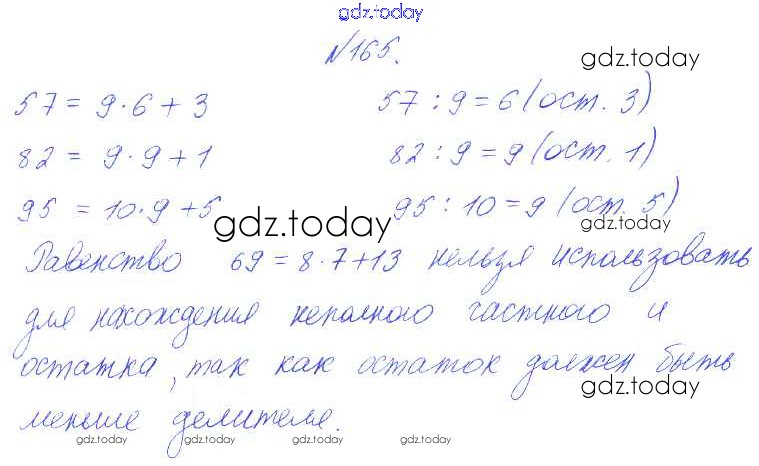 gdz.today
№165.
gdz.today
57 = 9·6 + 3 57 : 9 = 6 (ост. 3)
82 = 9·9 + 1 82 : 9 = 9 (ост. 1)
95 = 10·9 + 5 95 : 10 = 9 (ост. 5)
gdz.today gdz.today
Равенство 69 = 8·7 + 13 нельзя использовать
для нахождения неполного частного и
остатка, так как остаток должен быть
gdz.today
меньше делителя.
gdz.today gdz.today gdz.today gdz.today